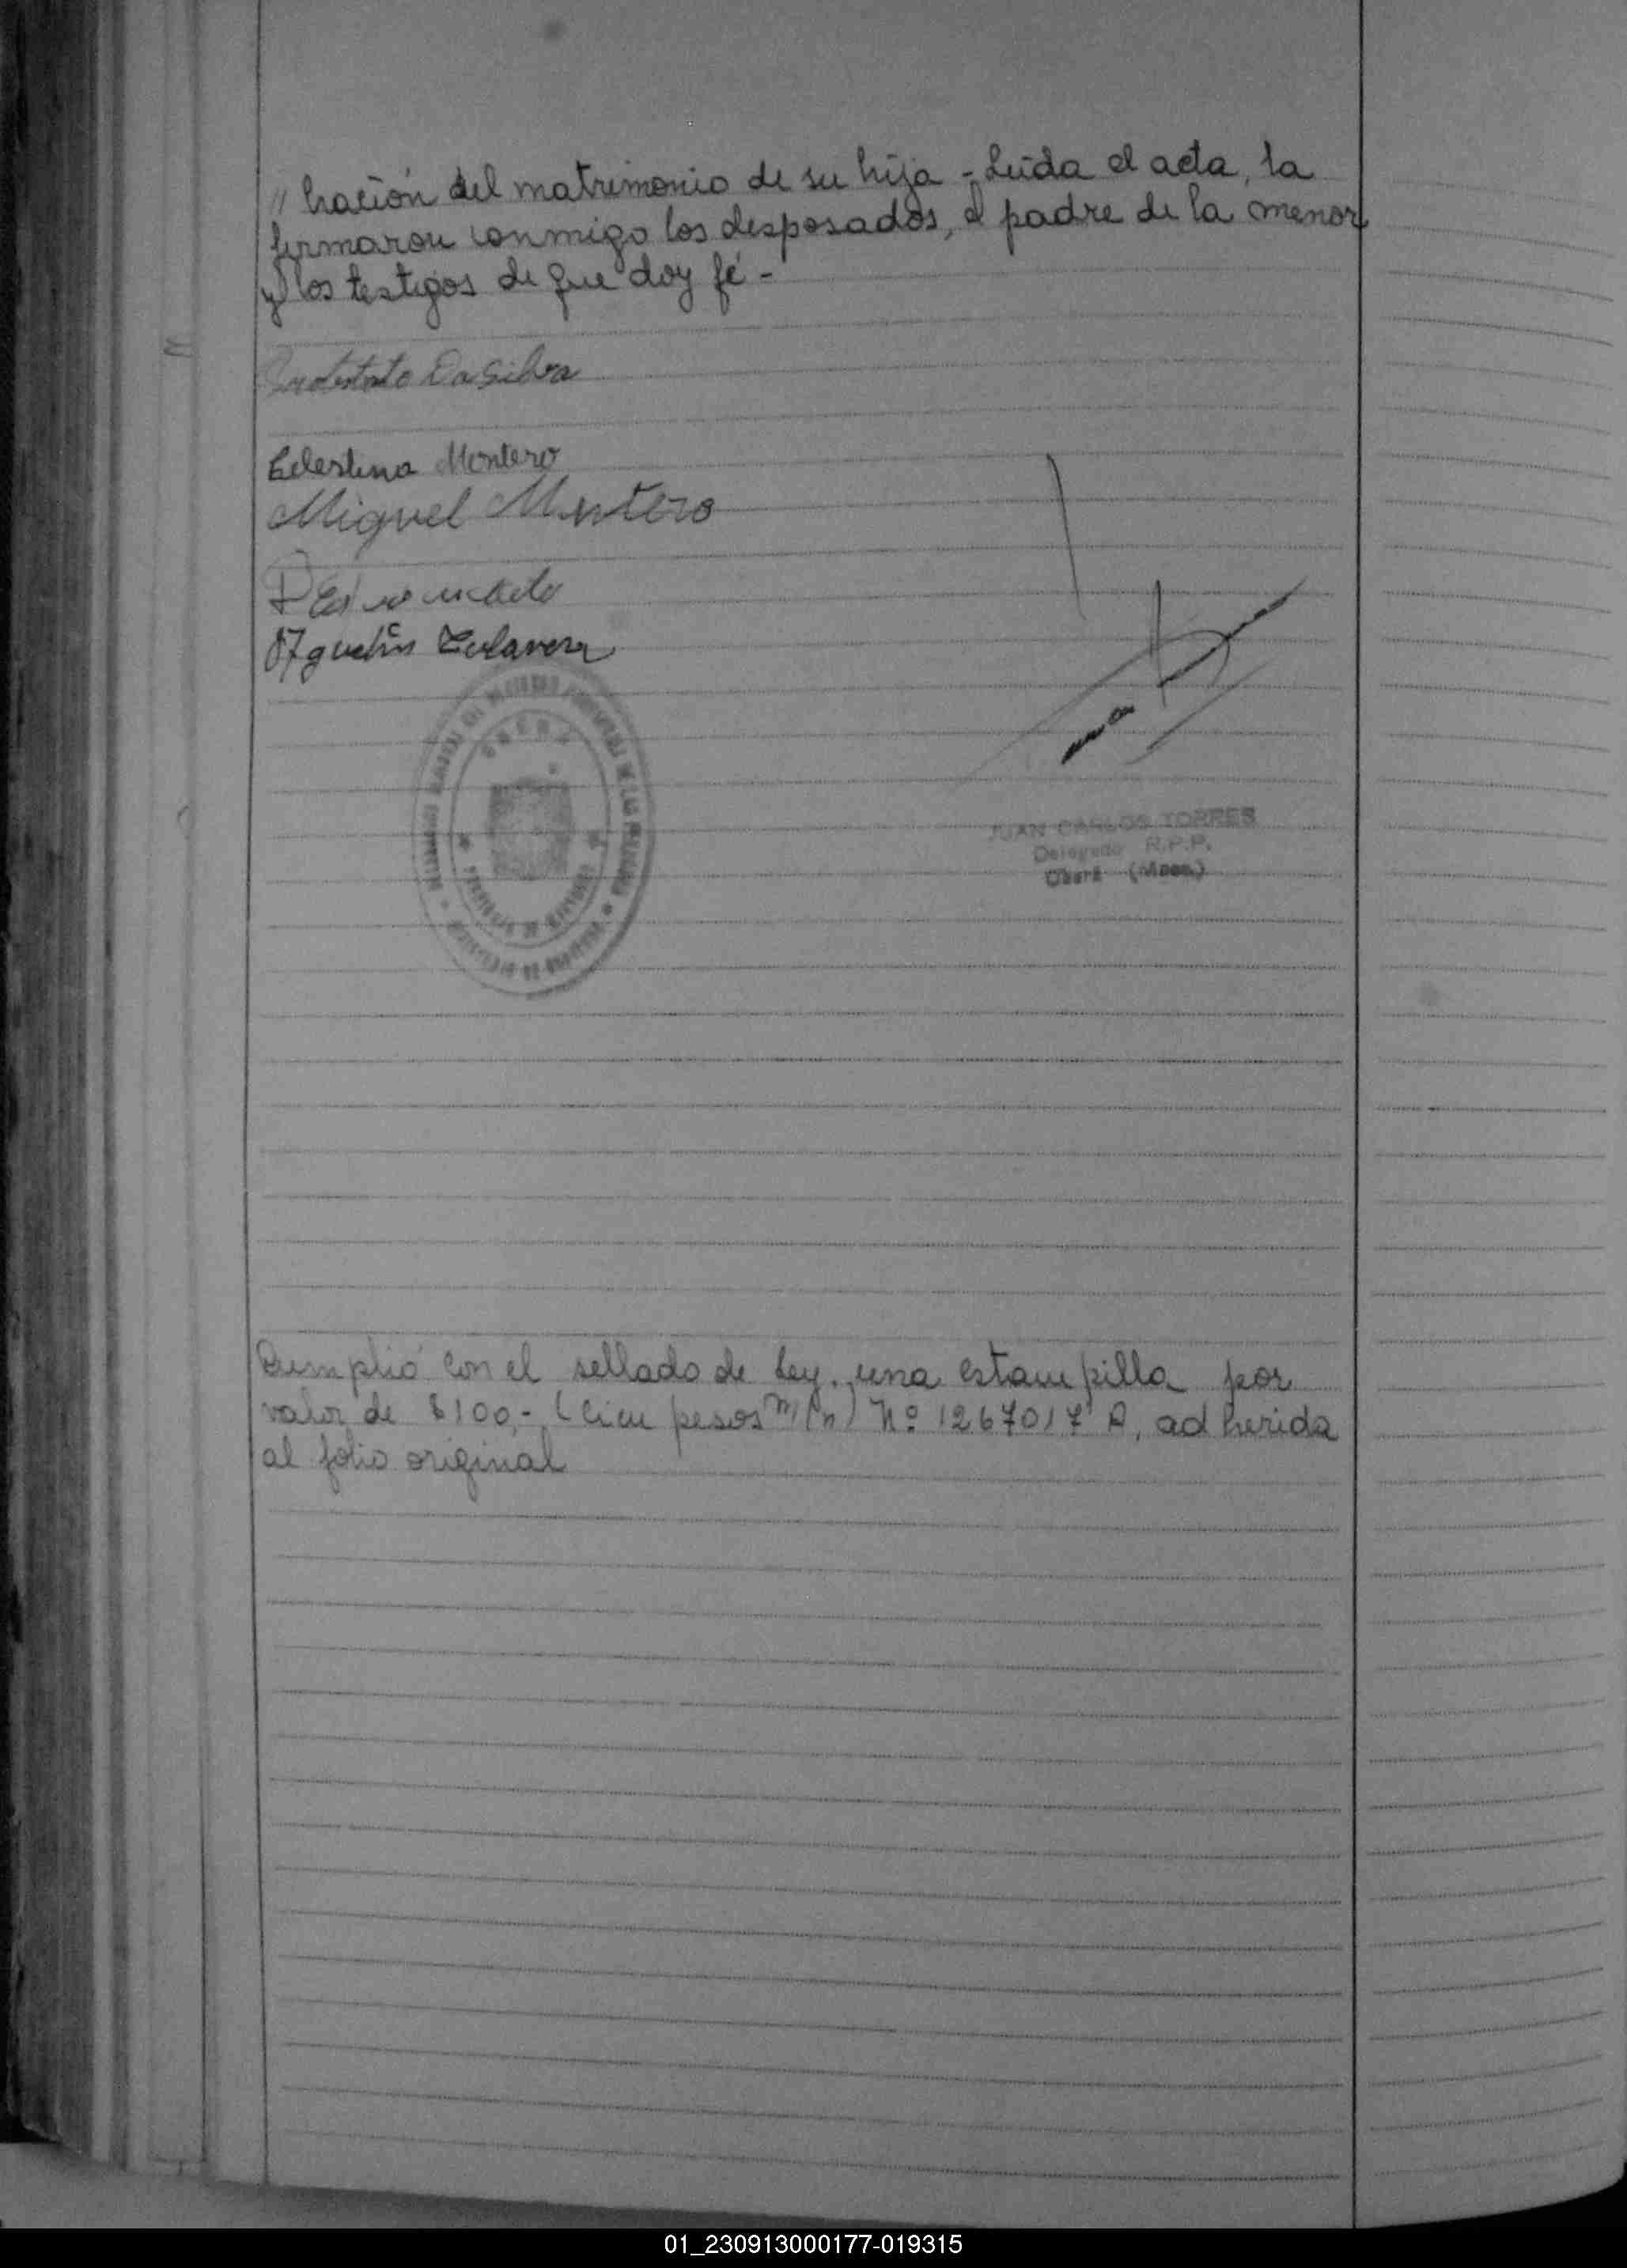 // bración del matrimonio de su hija - Leída el acta, la
firmaron conmigo los desposados, el padre de la menor
y los testigos de que doy fé -
Da Silva
Celestina Montero
Miguel Montero
Agustin Talavera
OBERA
PROVINCIA DE MISIONES
JUAN CARLOS TORRES
Delegado R.P.P.
Oberá (Mnes.)
Cumplió con el sellado de Ley, una estampilla por
valor de $100,- (cien pesos m/n) Nº 1267017 A, adherida
al folio original
01_230913000177-019315